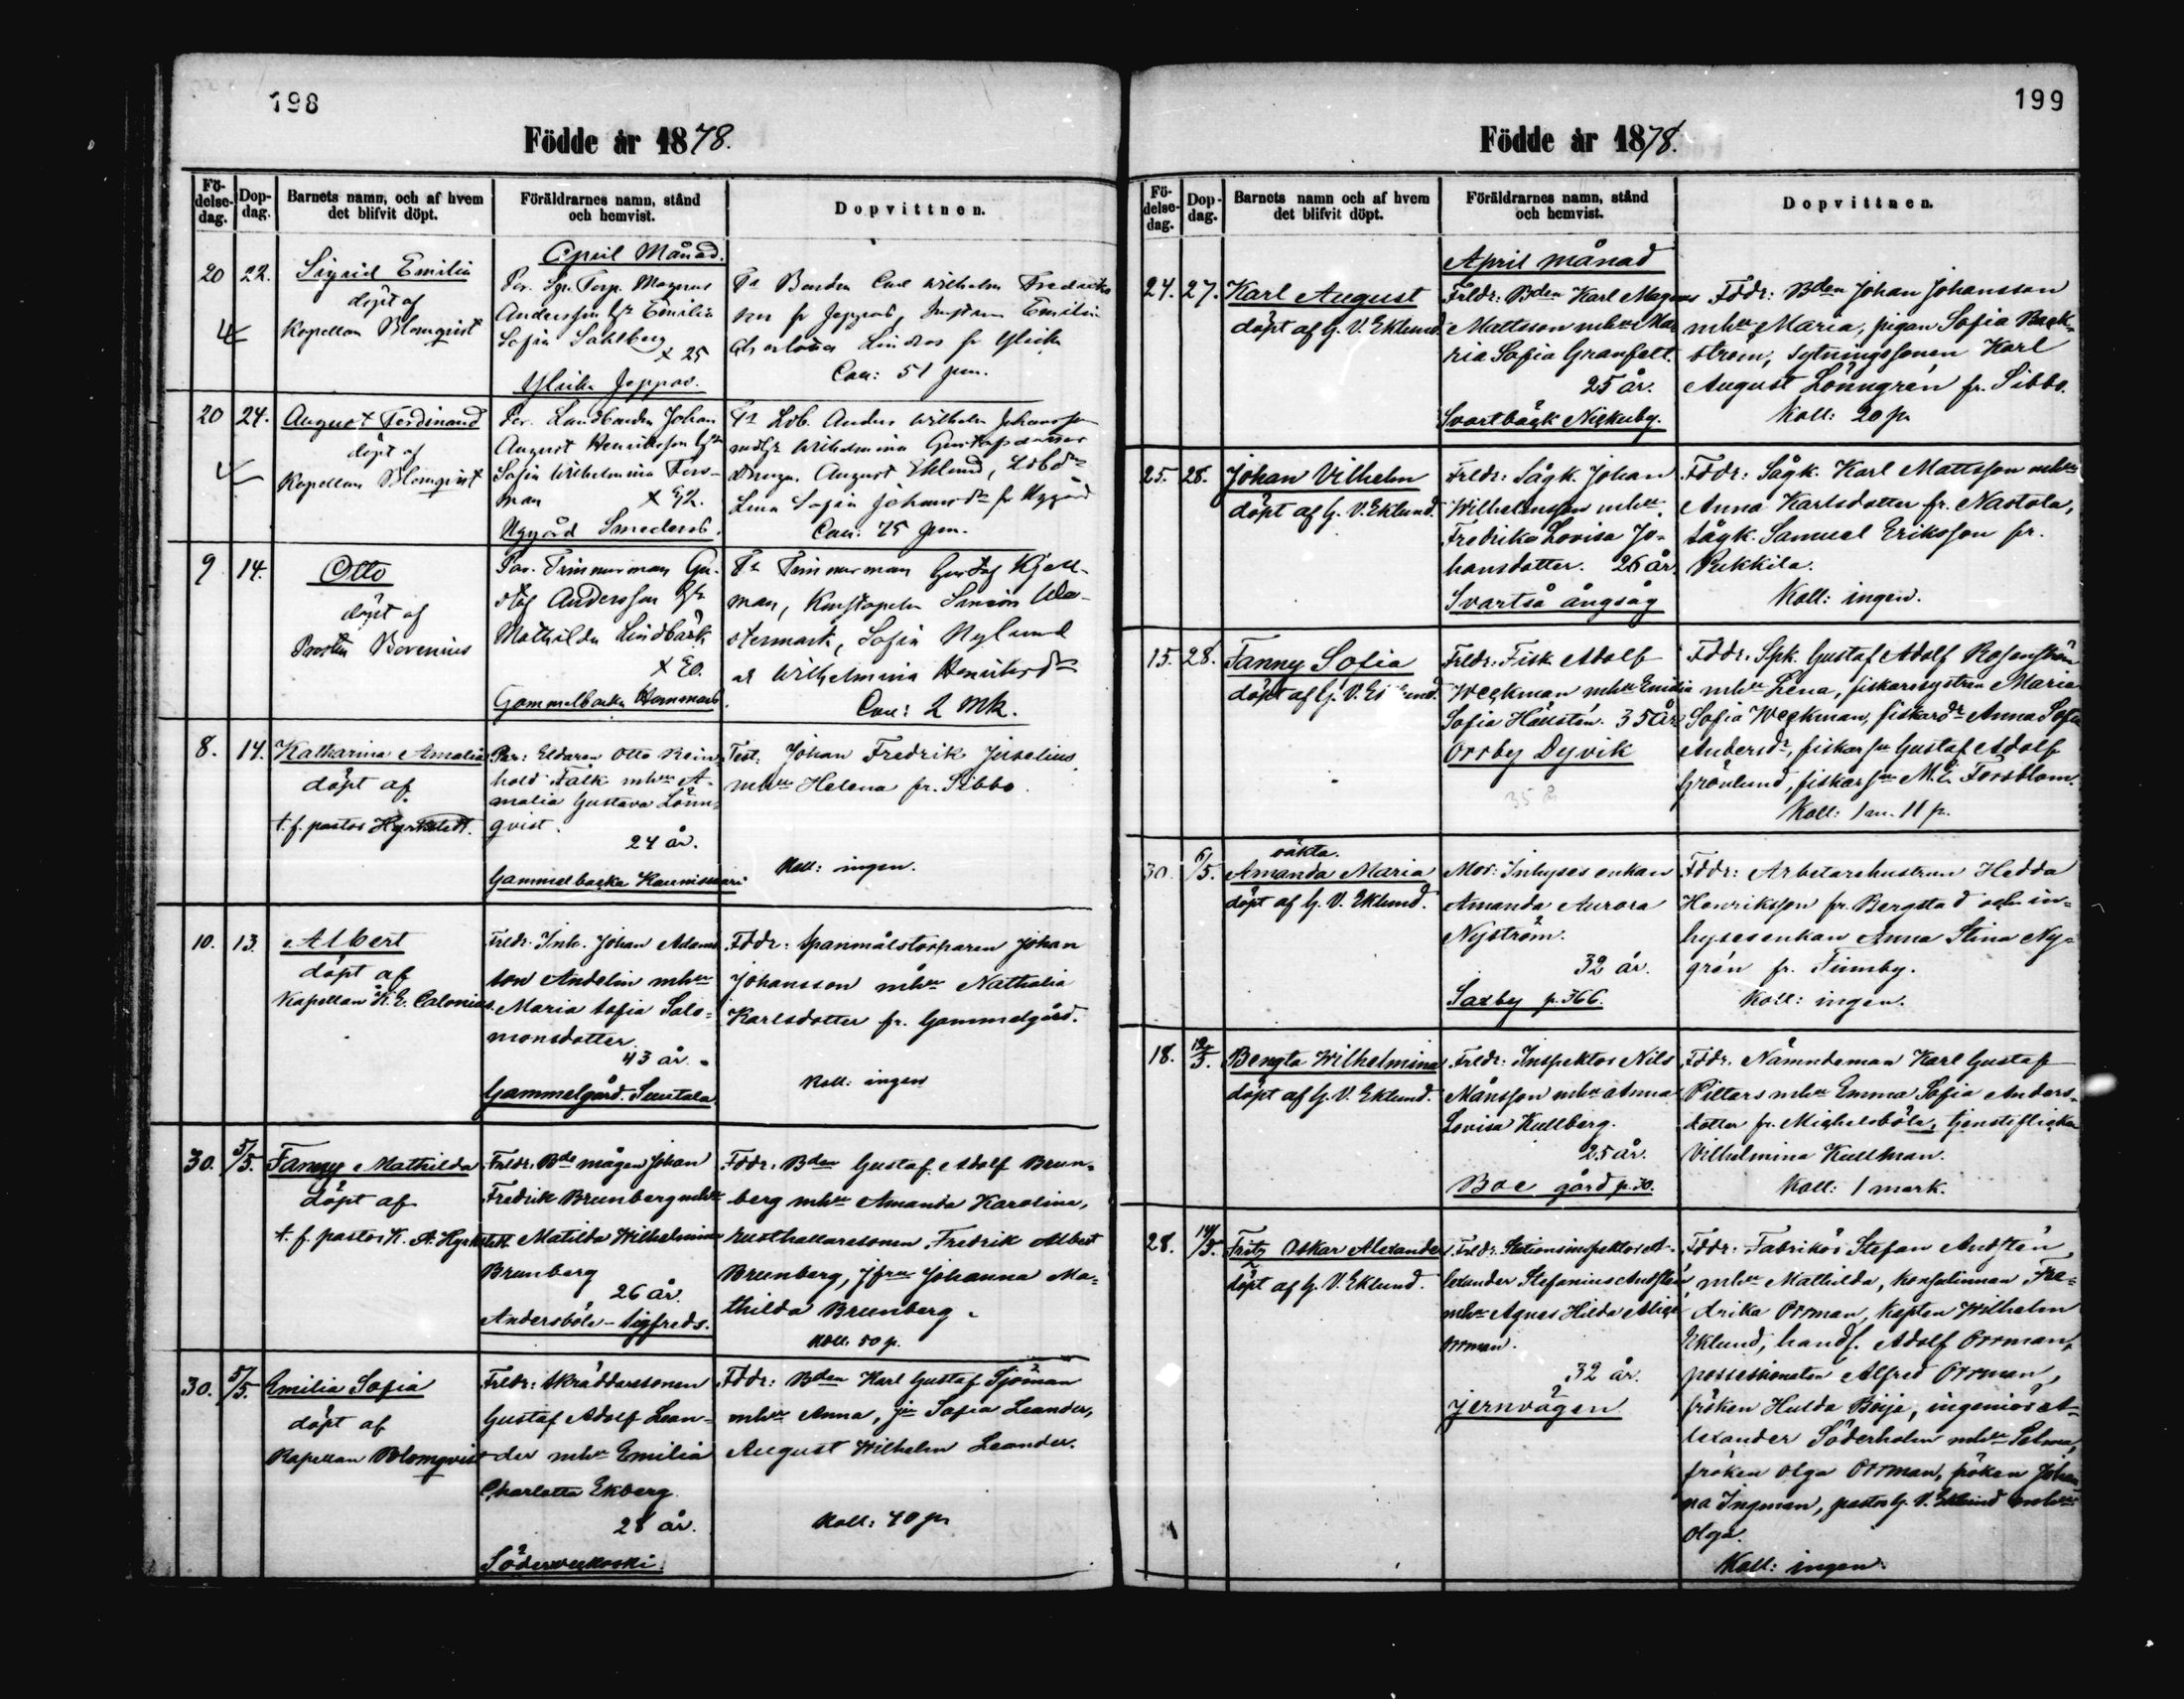 198
Födde år 1878.
Fö-
delse-
dag.
Dop-
dag.
Barnets namn, och af hvem
det blifvit döpt.
Föräldrarnes namn, stånd
och hemvist.
Dopvittnen.
April Månad.
20 22. Sigrid Emilia
döpt af
Kapellan Blomqvist
Magnus
Andersson Emilia
Sofia Sahlberg
x 25
Jeppas.
Carl Wilhelm
fr Jeppas, Emilia
fr
Coll: 51 pen.
20 24. August Ferdinand
döpt af
Kapellan Blomqvist
Par. Landbonden Johan
August Henriksson
Sofia Wilhelmina Fors-
man x 42.
Nygård Smedars.
Ldb. Anders Wilhelm Johansson
Wilhelmina Gustafsdotter
August Eklund,
Lena Sofia Johansdr fr Nygård
Coll: 75 pen.
9 14. Otto
döpt af
Prosten Borenius
Par. Timmerman Gu-
staf Andersson
Mathilda Lindbäck
x 20.
Gammelbacka Hommans.
Timmerman Gustaf
man, Simon
Sofia Nylund
Wilhelmina Henriksdr
Coll: 2 Mk.
8. 14. Katharina Amalia
döpt af
t.f. pastor Hyrkstedt.
Par: Eldaren Otto Rein-
hold Falk mhu A-
malia Gustava Lönn-
qvist.
24 år.
Gammelbacka Kauniswari
Test: Johan Fredrik Juselius
mhu Helena fr. Sibbo.
Koll: ingen.
10. 13. Albert
döpt af
Kapellan K. E. Calonius.
Frldr. Inh. Johan Adams
son Andelin mhu
Maria Sofia Salo-
monsdotter.
43 år.
Gammelgård. Suutala
Fddr: Spanmålstorparen Johan
Johansson mhu Nathalia
Karlsdotter fr. Gammelgård.
Koll: ingen
30. 5/5. Fanny Mathilda
döpt af
t. f. pastor K. A. Hyrkstedt.
Frldr. Bde mågen Johan
Fredrik Brunberg mhu
Matilda Wilhelmina
Brunberg
26 år.
Andersböle - Sigfreds.
Fddr. Bden Gustaf Adolf Brun-
berg mhu Amanda Karolina,
rusthållaresonen Fredrik Albert
Brunberg, jfru Johanna Ma-
thilda Brunberg.
Koll: 50 p.
30. 5/5. Emilia Sofia
döpt af
Kapellan Blomqvist
Frldr: Skräddaresonen
Gustaf Adolf Lean-
der mhu Emilia
Charlotta Ekberg.
28 år.
Söderveckoski.
Fddr: Bden Karl Gustaf Sjöman
mhu Anna, Sofia Leander,
August Wilhelm Leander.
Koll: 40 pi
199
Födde år 1878.
Fö-
delse-
dag.
Dop-
dag.
Barnets namn och af hvem
det blifvit döpt.
Föräldrarnes namn, stånd
och hemvist.
Dopvittnen.
April månad
24. 27. Karl August
döpt af G. V. Eklund.
Frldr: Bden Karl Magnus
Mattsson mhu Ma
ria Sofia Granfelt.
25 år.
Svartbäck Nickuby.
Fddr: Bden Johan Johansson
mhu Maria, pigan Sofia Back-
ström, sytningssonen Karl
August Lönngrén fr. Sibbo.
Koll: 20 p.
25. 28. Johan Vilhelm
döpt af G. V. Eklund.
Frldr: Sågk. Johan
Wilhelmsson mhu
Fredrika Lovisa Jo-
hansdotter. 26 år.
Svartså ångsåg
Fddr: Sågk. Karl Mattsson mhu
Anna Karlsdotter fr. Nastola,
sågk. Samuel Eriksson fr.
Pukkila.
Koll: ingen.
15. 28. Fanny Sofia
döpt af G. V. Eklund.
Frldr. Fisk. Adolf
Weckman mhu Emilia
Sofia Hällstén. 35 år
Orrby Dyvik
35 å
Fddr. Spk. Gustaf Adolf Rosenström
mhu Lena, fiskaresystern Maria
Sofia Weckman, fiskardr Anna Sofia
Andersdr, fiskar Gustaf Adolf
Grönlund, fiskar M. L. Forsblom.
Koll: 1 m. 11 p.
30. 6/5. oäkta.
Amanda Maria
döpt af G. V. Eklund.
Mor: Inhyses enkan
Amanda Aurora
Nyström.
32 år.
Saxby p. 366.
Fddr: Arbetarehustrun Hedda
Henriksson fr. Bergstad och in-
hysesenkan Anna Stina Ny-
grén fr. Finnby.
Koll: ingen.
18. 12/5. Bengta Wilhelmina
döpt af G. V. Eklund.
Frldr: Inspektor Nils
Månsson mhu Anna
Lovisa Kullberg.
25 år.
Boe gård p. 30.
Fddr. Nämndeman Karl Gustaf
Pitters mhu Emma Sofia Anders-
dotter fr. Michelsböle, tjensteflickan
Vilhelmina Kullman.
Koll: 1 mark.
28. 14/5. Fritz Oskar Alexander
döpt af G. V. Eklund.
Frldr. Stationsinspektor A-
lexander Stefanius Andstén,
mhu Agnes Hilda
Orrman.
32 år.
Jernvägen
Fddr: Fabrikör Stefan Andstén,
mhu Mathilda, konsulinnan Fre-
drika Orrman, kapten Wilhelm
Eklund, handl. Adolf Orrman,
possessionaten Alfred Orrman,
fröken Hulda Boije, ingeniör A-
lexander Söderholm mhu Selma,
fröken Olga Orrman, fröken Johan
na Ingman, pastor G. V. Eklund mhu
Olga.
Koll: ingen.